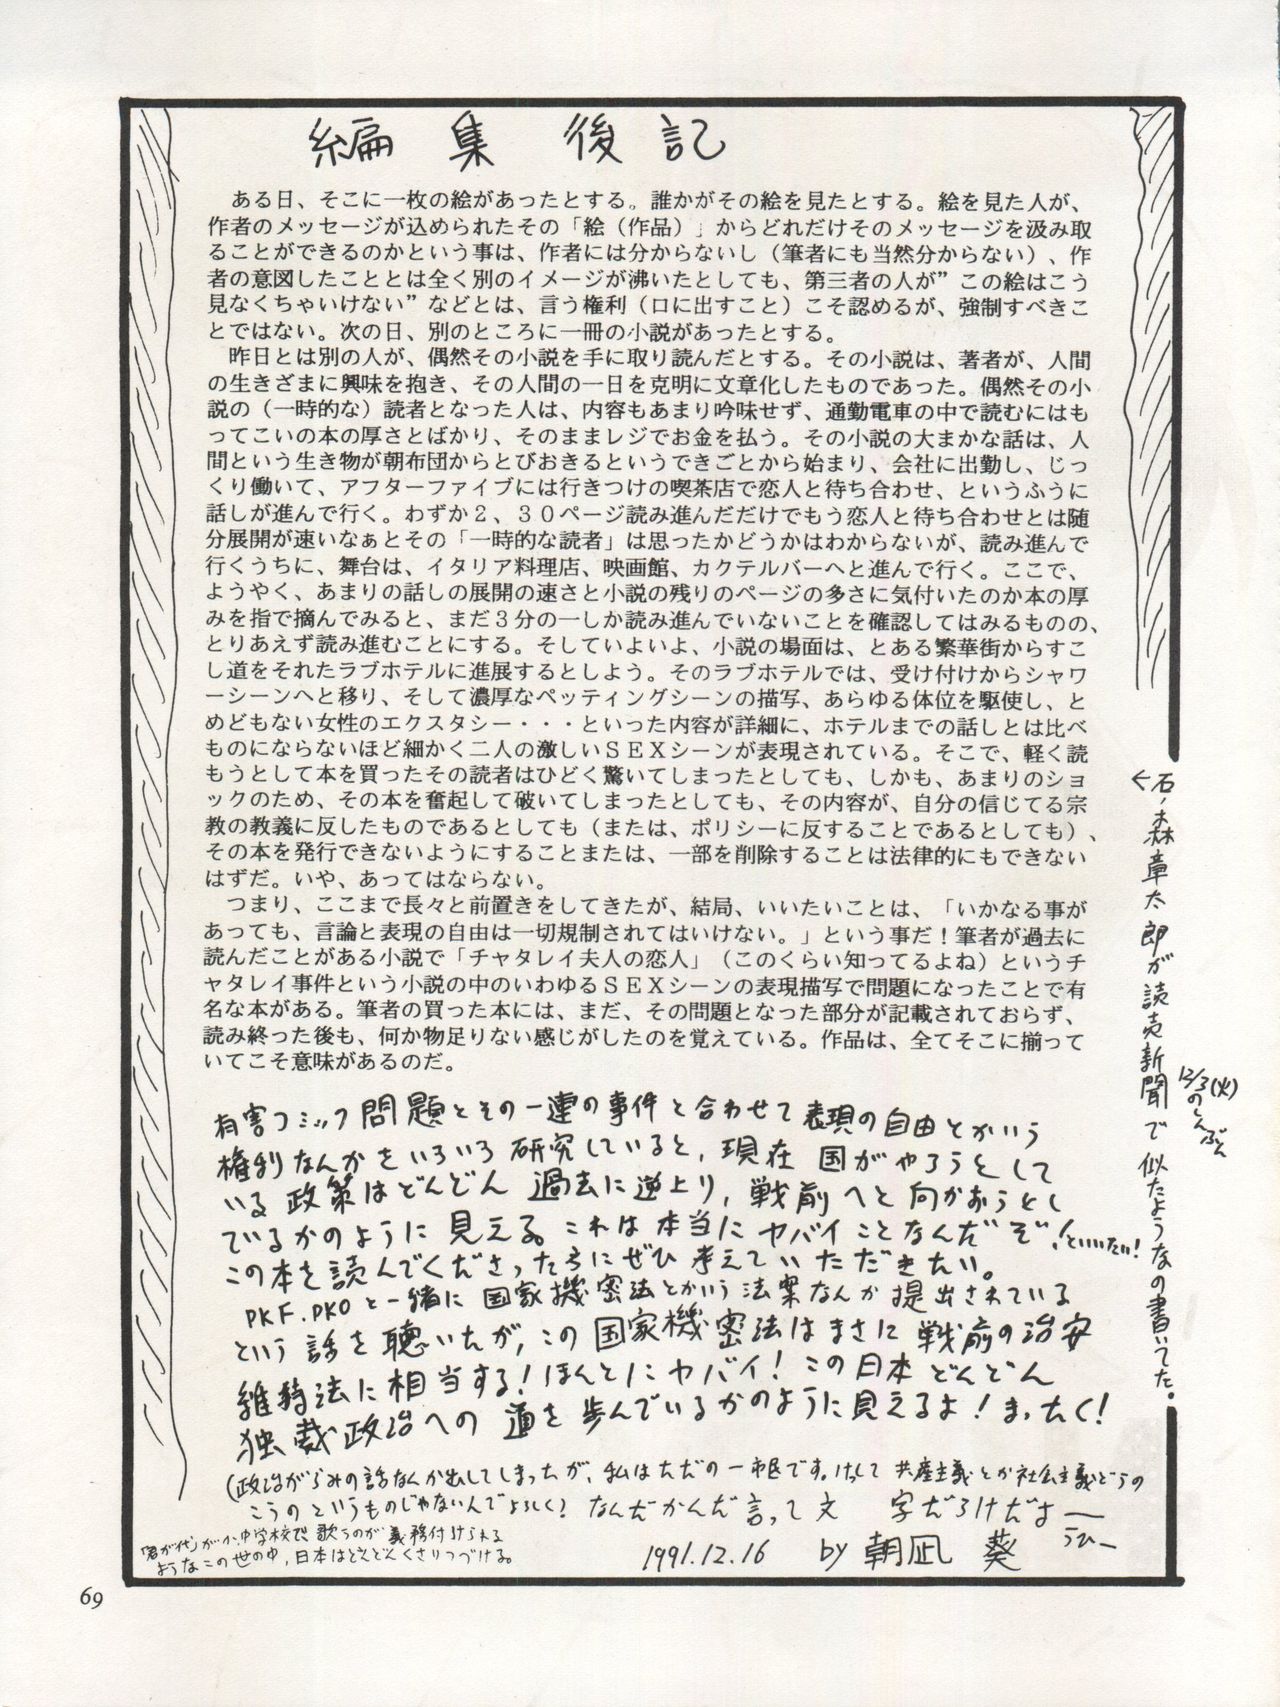 編集後記
ある日、そこに一枚の絵があったとする。誰かがその絵を見たとする。絵を見た人が、
作者のメッセージが込められたその「絵（作品）」からどれだけそのメッセージを汲み取
ることができるのかという事は、作者には分からないし（筆者にも当然分からない）、作
者の意図したこととは全く別のイメージが沸いたとしても、第三者の人が”この絵はこう
見なくちゃいけない”などとは、言う権利（口に出すこと）こそ認めるが、強制すべきこ
とではない。次の日、別のところに一冊の小説があったとする。
昨日とは別の人が、偶然その小説を手に取り読んだとする。その小説は、著者が、人間
の生きざまに興味を抱き、その人間の一日を克明に文章化したものであった。偶然その小
説の（一時的な）読者となった人は、内容もあまり吟味せず、通勤電車の中で読むにはも
ってこいの本の厚さとばかり、そのままレジでお金を払う。その小説の大まかな話は、人
間という生き物が朝布団からとびおきるというできごとから始まり、会社に出勤し、じっ
くり働いて、アフターファイブには行きつけの喫茶店で恋人と待ち合わせ、というふうに
話しが進んで行く。わずか２、３０ページ読み進んだだけでもう恋人と待ち合わせとは随
分展開が速いなぁとその「一時的な読者」は思ったかどうかはわからないが、読み進んで
行くうちに、舞台は、イタリア料理店、映画館、カクテルバーへと進んで行く。ここで、
ようやく、あまりの話しの展開の速さと小説の残りのページの多さに気付いたのか本の厚
みを指で摘んでみると、まだ３分の一しか読み進んでいないことを確認してはみるものの、
とりあえず読み進むことにする。そしていよいよ、小説の場面は、とある繁華街からすこ
し道をそれたラブホテルに進展するとしよう。そのラブホテルでは、受け付けからシャワ
ーシーンへと移り、そして濃厚なペッティングシーンの描写、あらゆる体位を駆使し、と
めどもない女性のエクスタシー・・・といった内容が詳細に、ホテルまでの話しとは比べ
ものにならないほど細かく二人の激しいＳＥＸシーンが表現されている。そこで、軽く読
もうとして本を買ったその読者はひどく驚いてしまったとしても、しかも、あまりのショ
ックのため、その本を奮起して破いてしまったとしても、その内容が、自分の信じてる宗
教の教義に反したものであるとしても（または、ポリシーに反することであるとしても）、
その本を発行できないようにすることまたは、一部を削除することは法律的にもできない
はずだ。いや、あってはならない。
つまり、ここまで長々と前置きをしてきたが、結局、いいたいことは、「いかなる事が
あっても、言論と表現の自由は一切規制されてはいけない。」という事だ！筆者が過去に
読んだことがある小説で「チャタレイ夫人の恋人」（このくらい知ってるよね）というチ
ャタレイ事件という小説の中のいわゆるＳＥＸシーンの表現描写で問題になったことで有
名な本がある。筆者の買った本には、まだ、その問題となった部分が記載されておらず、
読み終った後も、何か物足りない感じがしたのを覚えている。作品は、全てそこに揃って
いてこそ意味があるのだ。
有害コミック問題とその一連の事件と合わせて表現の自由とかいう
権利なんかをいろいろ研究していると、現在国がやろうとして
いる政策はどんどん過去に逆上り、戦前へと向かおうとし
ているかのように見える。これは本当にヤバイことなんだぞ！といいたい！
この本を読んでくださった方にぜひ考えていただきたい。
PKF.PKOと一緒に国家機密法とかいう法案なんか提出されている
という話を聴いたが、この国家機密法はまさに戦前の治安
維持法に相当する！ほんとにヤバイ！この日本どんどん
独裁政治への道を歩んでいるかのように見えるよ！まったく！
（政治がらみの話なんか出してしまったが、私はただの一市民です。けっして共産主義とか社会主義どうの
こうのというものじゃないんでよろしく！なんだかんだ言って文字だらけだよー
うひー
「君が代」がか、中学校で歌うのが義務付けられる
ようなこの世の中、日本はどんどんくさりつづける。
1991.12.16 by 朝凪 葵
←石ノ森章太郎が読売新聞で似たようなの書いてた。
12/3(火)
のしんぶん
69